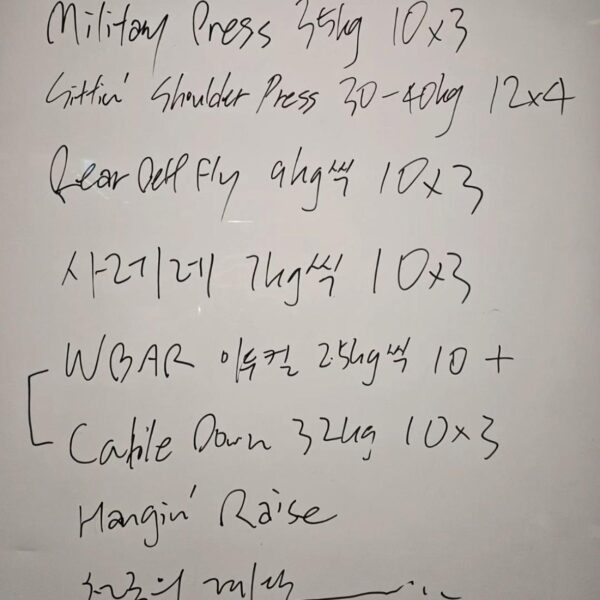 Military Press 35kg 10x3
Sittin' Shoulder Press 30-40kg 12x4
Rear Delt Fly 9kg씩 10x3
사레레 7kg씩 10x3
WBAR 이두컬 2.5kg씩 10 +
Cable Down 32kg 10x3
Hangin' Raise
천국의 계단